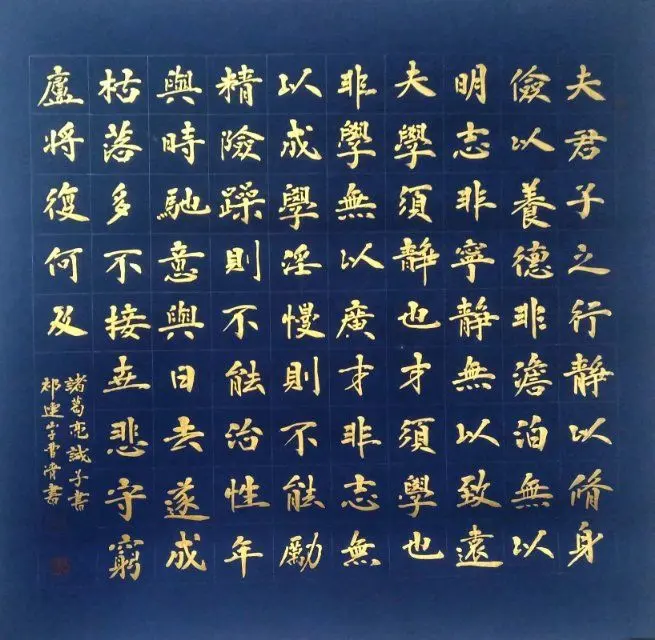 夫君子之行靜以脩身
儉以養德非澹泊無以
明志非寧靜無以致遠
夫學須靜也才須學也
非學無以廣才非志無
以成學淫慢則不能勵
精險躁則不能治性年
與時馳意與日去遂成
枯落多不接世悲守窮
廬將復何及
諸葛亮誡子書
祁連山子曹書